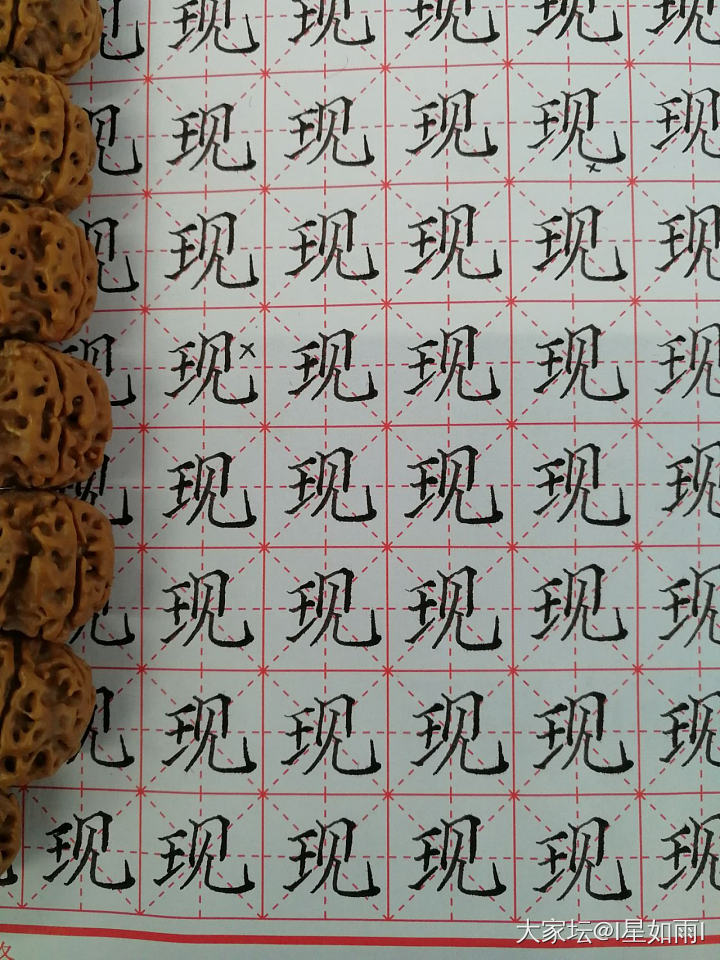 现现现现现现
现现现现现现
现现现现现现
现现现现现现
现现现现现现
现现现现现现
现现现现现现
现现现现现现
大家坛@I星如雨I